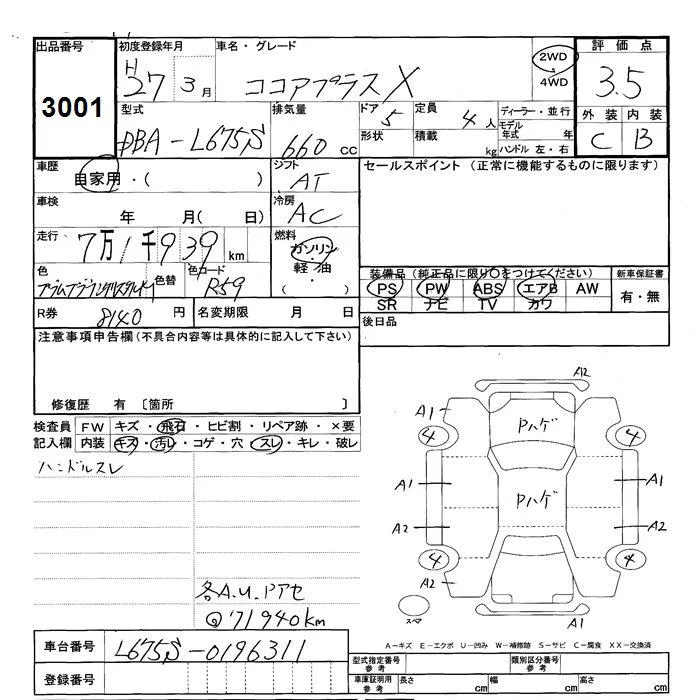 出品番号
3001
初度登録年月
H 27 3月
車名・グレード
ココアプラスX
2WD
4WD
評価点
3.5
外装 内装
C B
型式
DBA-L675S
排気量
660 cc
ドア 5
形状
定員 4人
積載 kg
ディーラー・並行
モデル年式 年
ハンドル 左・右
車歴
自家用・( )
シフト
AT
セールスポイント (正常に機能するものに限ります)
車検
年 月( 日)
冷房
AC
走行
7万1千939km
燃料
ガソリン
軽油
( )
色
色替
色コード
R59
装備品 (純正品に限り○をつけてください)
PS PW ABS エアB AW
SR ナビ TV カワ
新車保証書
有・無
R券 8140円
名変期限 月 日
後日品
注意事項申告欄 (不具合内容等は具体的に記入して下さい)
修復歴 有 〔箇所 〕
検査員記入欄
FW キズ・飛石・ヒビ割・リペア跡・×要
内装 キズ・汚レ・コゲ・穴・スレ・キレ・破レ
ハンドルスレ
各A.U.Pアセ
@'71940km
A2
A1
4 4
Pハゲ
A1 A1
Pハゲ
A2 A2
4 4
A2
スペア
A1
A-キズ E-エクボ U-凹み W-補修跡 S-サビ C-腐食 XX-交換済
車台番号
L675S-0196311
登録番号
型式指定番号 参考
類別区分番号 参考
車庫証明用 参考
長さ cm 幅 cm 高さ cm